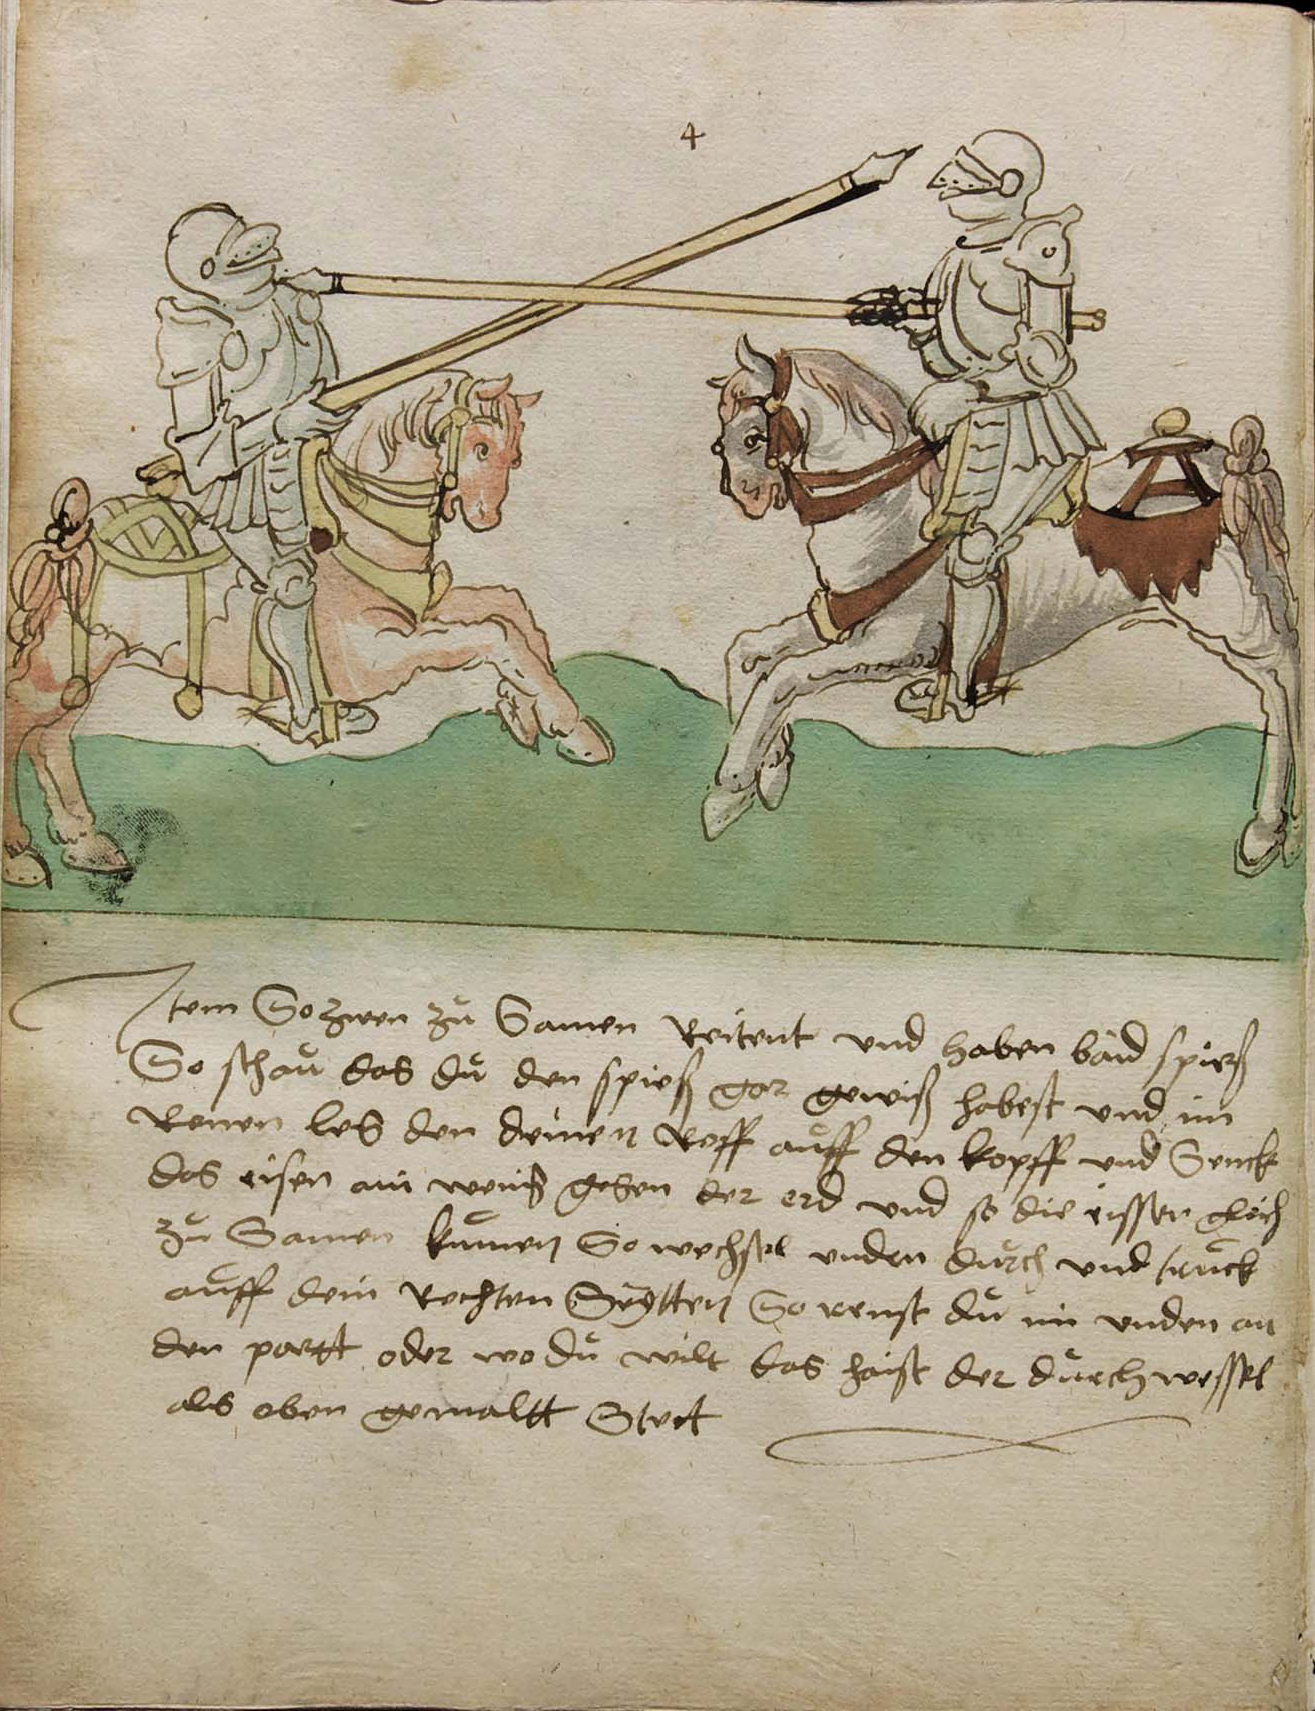 4
Item So zwen zů Samen Reitent und haben baid spieß
So schaů das dů den spieß gar gewiß habest und im
Renen les den deinen Roff aůff den kopff und Senck
das eisen ain wenig geben der erd und so die eissen gleich
zů Samen kůmen So wechstel unden důrch und truck
aůff dein Rechten Seytten So renst dů im unden an
den partt oder wo dů wilt das haist der důrchwessel
als oben gemaltt Stett